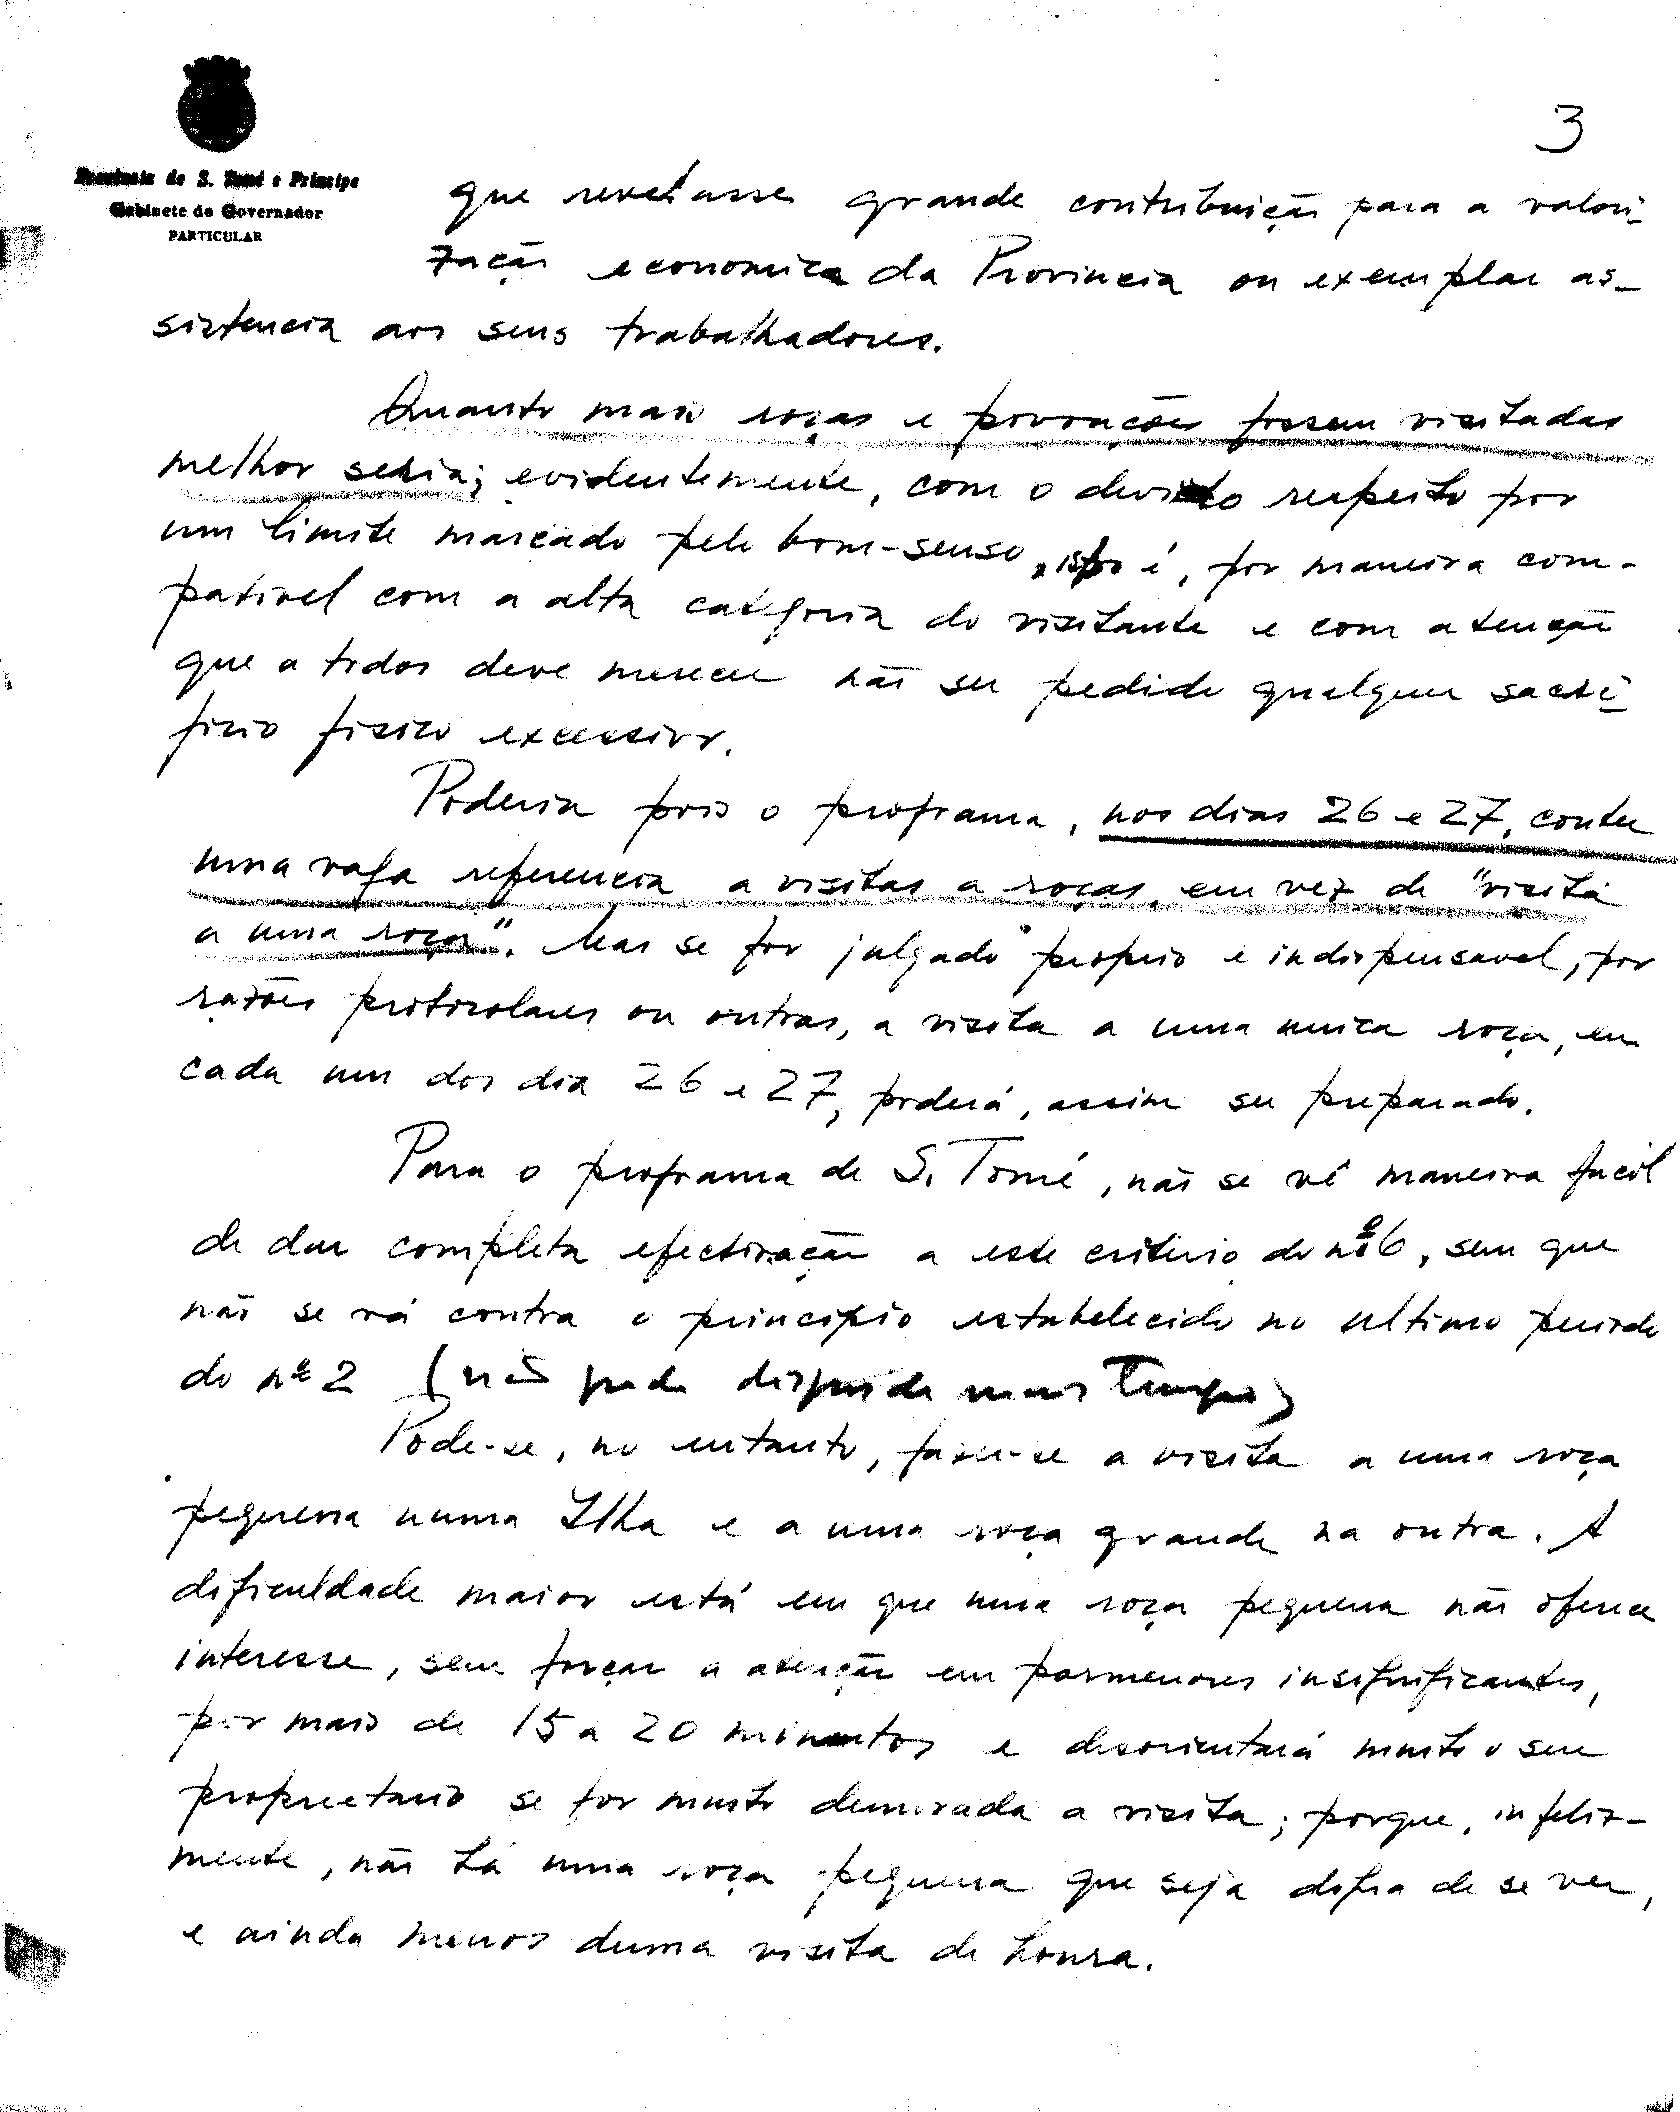 3
Provincia de S. Tomé e Principe
Gabinete do Governador
PARTICULAR
que revelasse grande contribuição para a valori-
zação economica da Provincia ou exemplar as-
sistencia aos seus trabalhadores.
Quanto mais roças e povoações fossem visitadas
melhor seria; evidentemente, com o devido respeito por
um limite marcado pelo bom-senso, isto é, por maneira com-
pativel com a alta categoria do visitante e com atenção
que a todos deve merecer não ser pedido qualquer sacri-
ficio fisico excessivo.
Poderia pois o programa, nos dias 26 e 27, conter
uma vaga referencia a visitas a roças, em vez de "visita
a uma roça". Mas se for julgado proprio e indispensavel, por
razões protocolares ou outras, a visita a uma unica roça, em
cada um dos dia 26 e 27, poderá, assim ser preparado.
Para o programa de S. Tomé, não se vê maneira facil
de dar completa efectivação a este criterio do nº 6, sem que
não se vá contra o principio estabelecido no ultimo periodo
do nº 2 (não pode dispor de mais tempo)
Pode-se, no entanto, fazer-se a visita a uma roça
pequena numa Ilha e a uma roça grande na outra. A
dificuldade maior está em que uma roça pequena não oferece
interesse, sem forçar a atenção em pormenores insignificantes,
por mais de 15 a 20 minutos e desorientará muito o seu
proprietario se for muito demorada a visita; porque, infeliz-
mente, não há uma roça pequena que seja digna de se ver,
e ainda menos duma visita de honra.